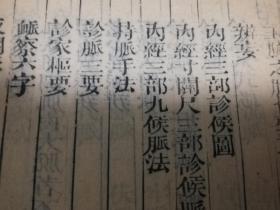 辨妄
內經三部診候圖
內經寸關尺三部診候脈
內經三部九候脈法
持脈手法
診脈三要
診家樞要
脈察六字